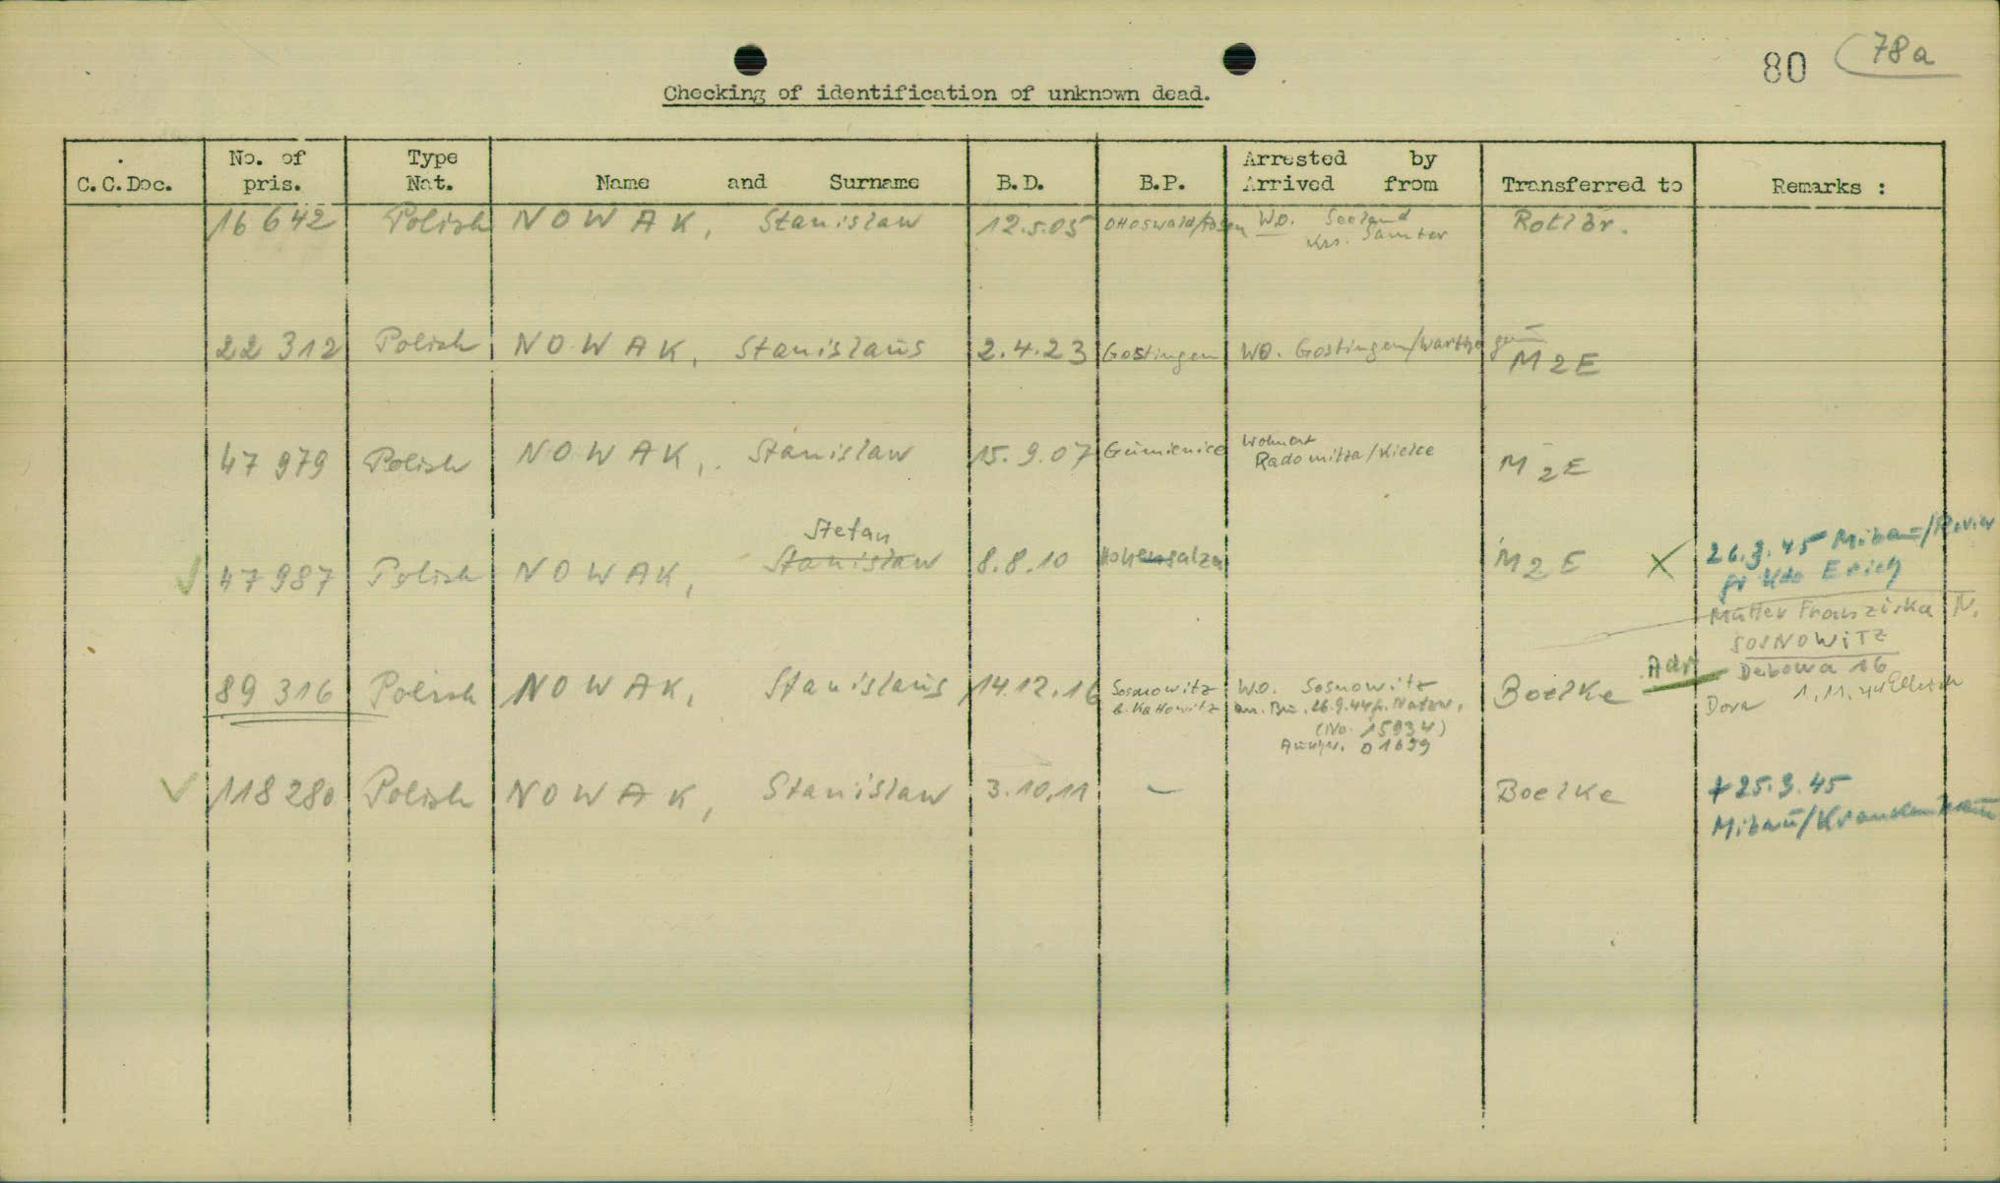 80 78a
Checking of identification of unknown dead.
C.C.Doc. No. of pris. Type Nat. Name and Surname B.D. B.P. Arrested by Arrived from Transferred to Remarks :
16 642 Polish NOWAK, Stanislaw 12.5.05 Wo. Seeland Rotlbr.
Krs. Samter
22 312 Polish NOWAK, Stanislaus 2.4.23 Gostingen Wo. Gostingen/Warthegau M2E
47 979 Polish NOWAK, Stanislaw 15.9.07 Gumienice Wohnort M2E
Radomitza/Kielce
Stefan
47 987 Polish NOWAK, Stanislaw 8.8.10 Hohensalza M2E X 26.3.45 Mibau/Revier
Kdo Erich
Mutter Franziska N.
SOSNOWITZ
Adr Debowa 16
89 316 Polish NOWAK, Stanislaus 14.12.16 Sosnowitz Wo. Sosnowitz Boelke Dora 1.11.44 Ellrich
b. Kattowitz an. Bu. 26.9.44 f. Natzw.
(No. 15934)
01699
118 280 Polish NOWAK, Stanislaw 3.10.11 – Boelke + 25.3.45
Mibau/Krankenbau